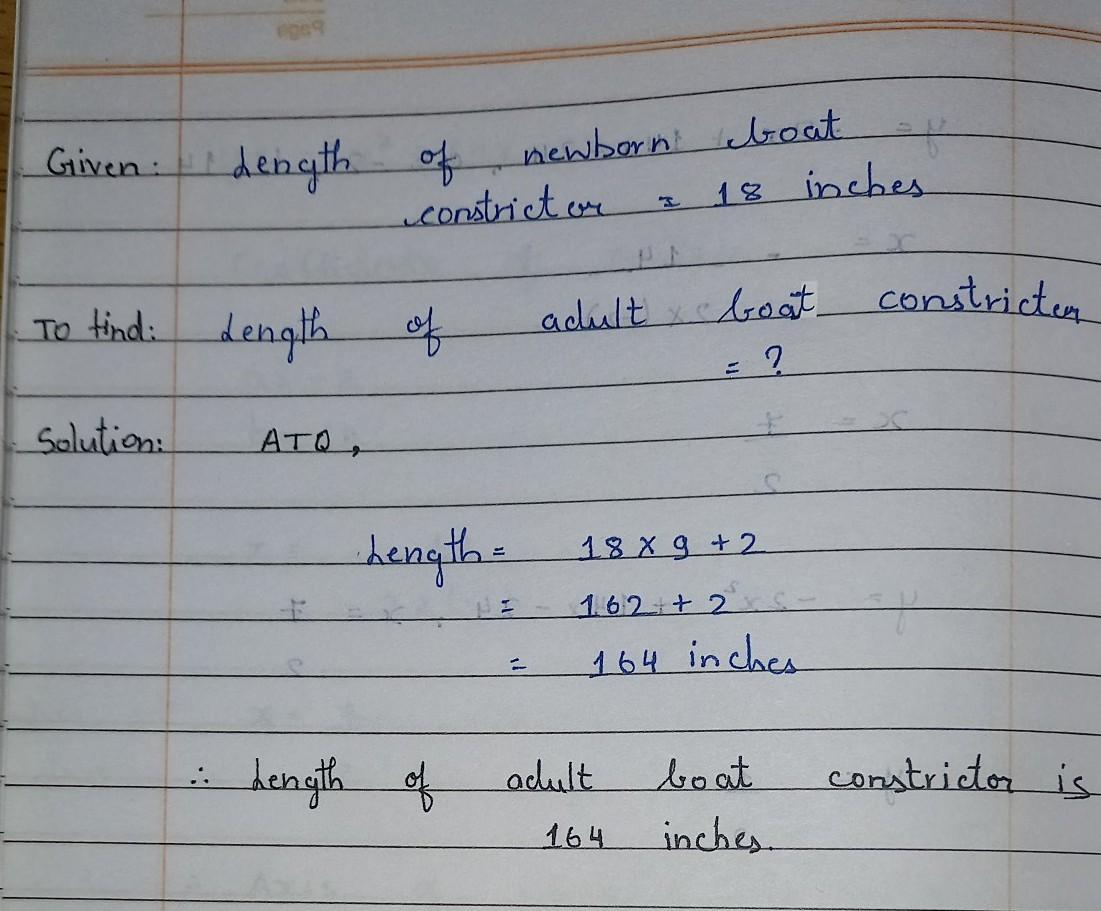 Given: Length of newborn boat
constrictor = 18 inches
To find: Length of adult boat constrictor
= ?
Solution: ATQ,
Length = 18 x 9 + 2
= 162 + 2
= 164 inches
∴ Length of adult boat constrictor is
164 inches.